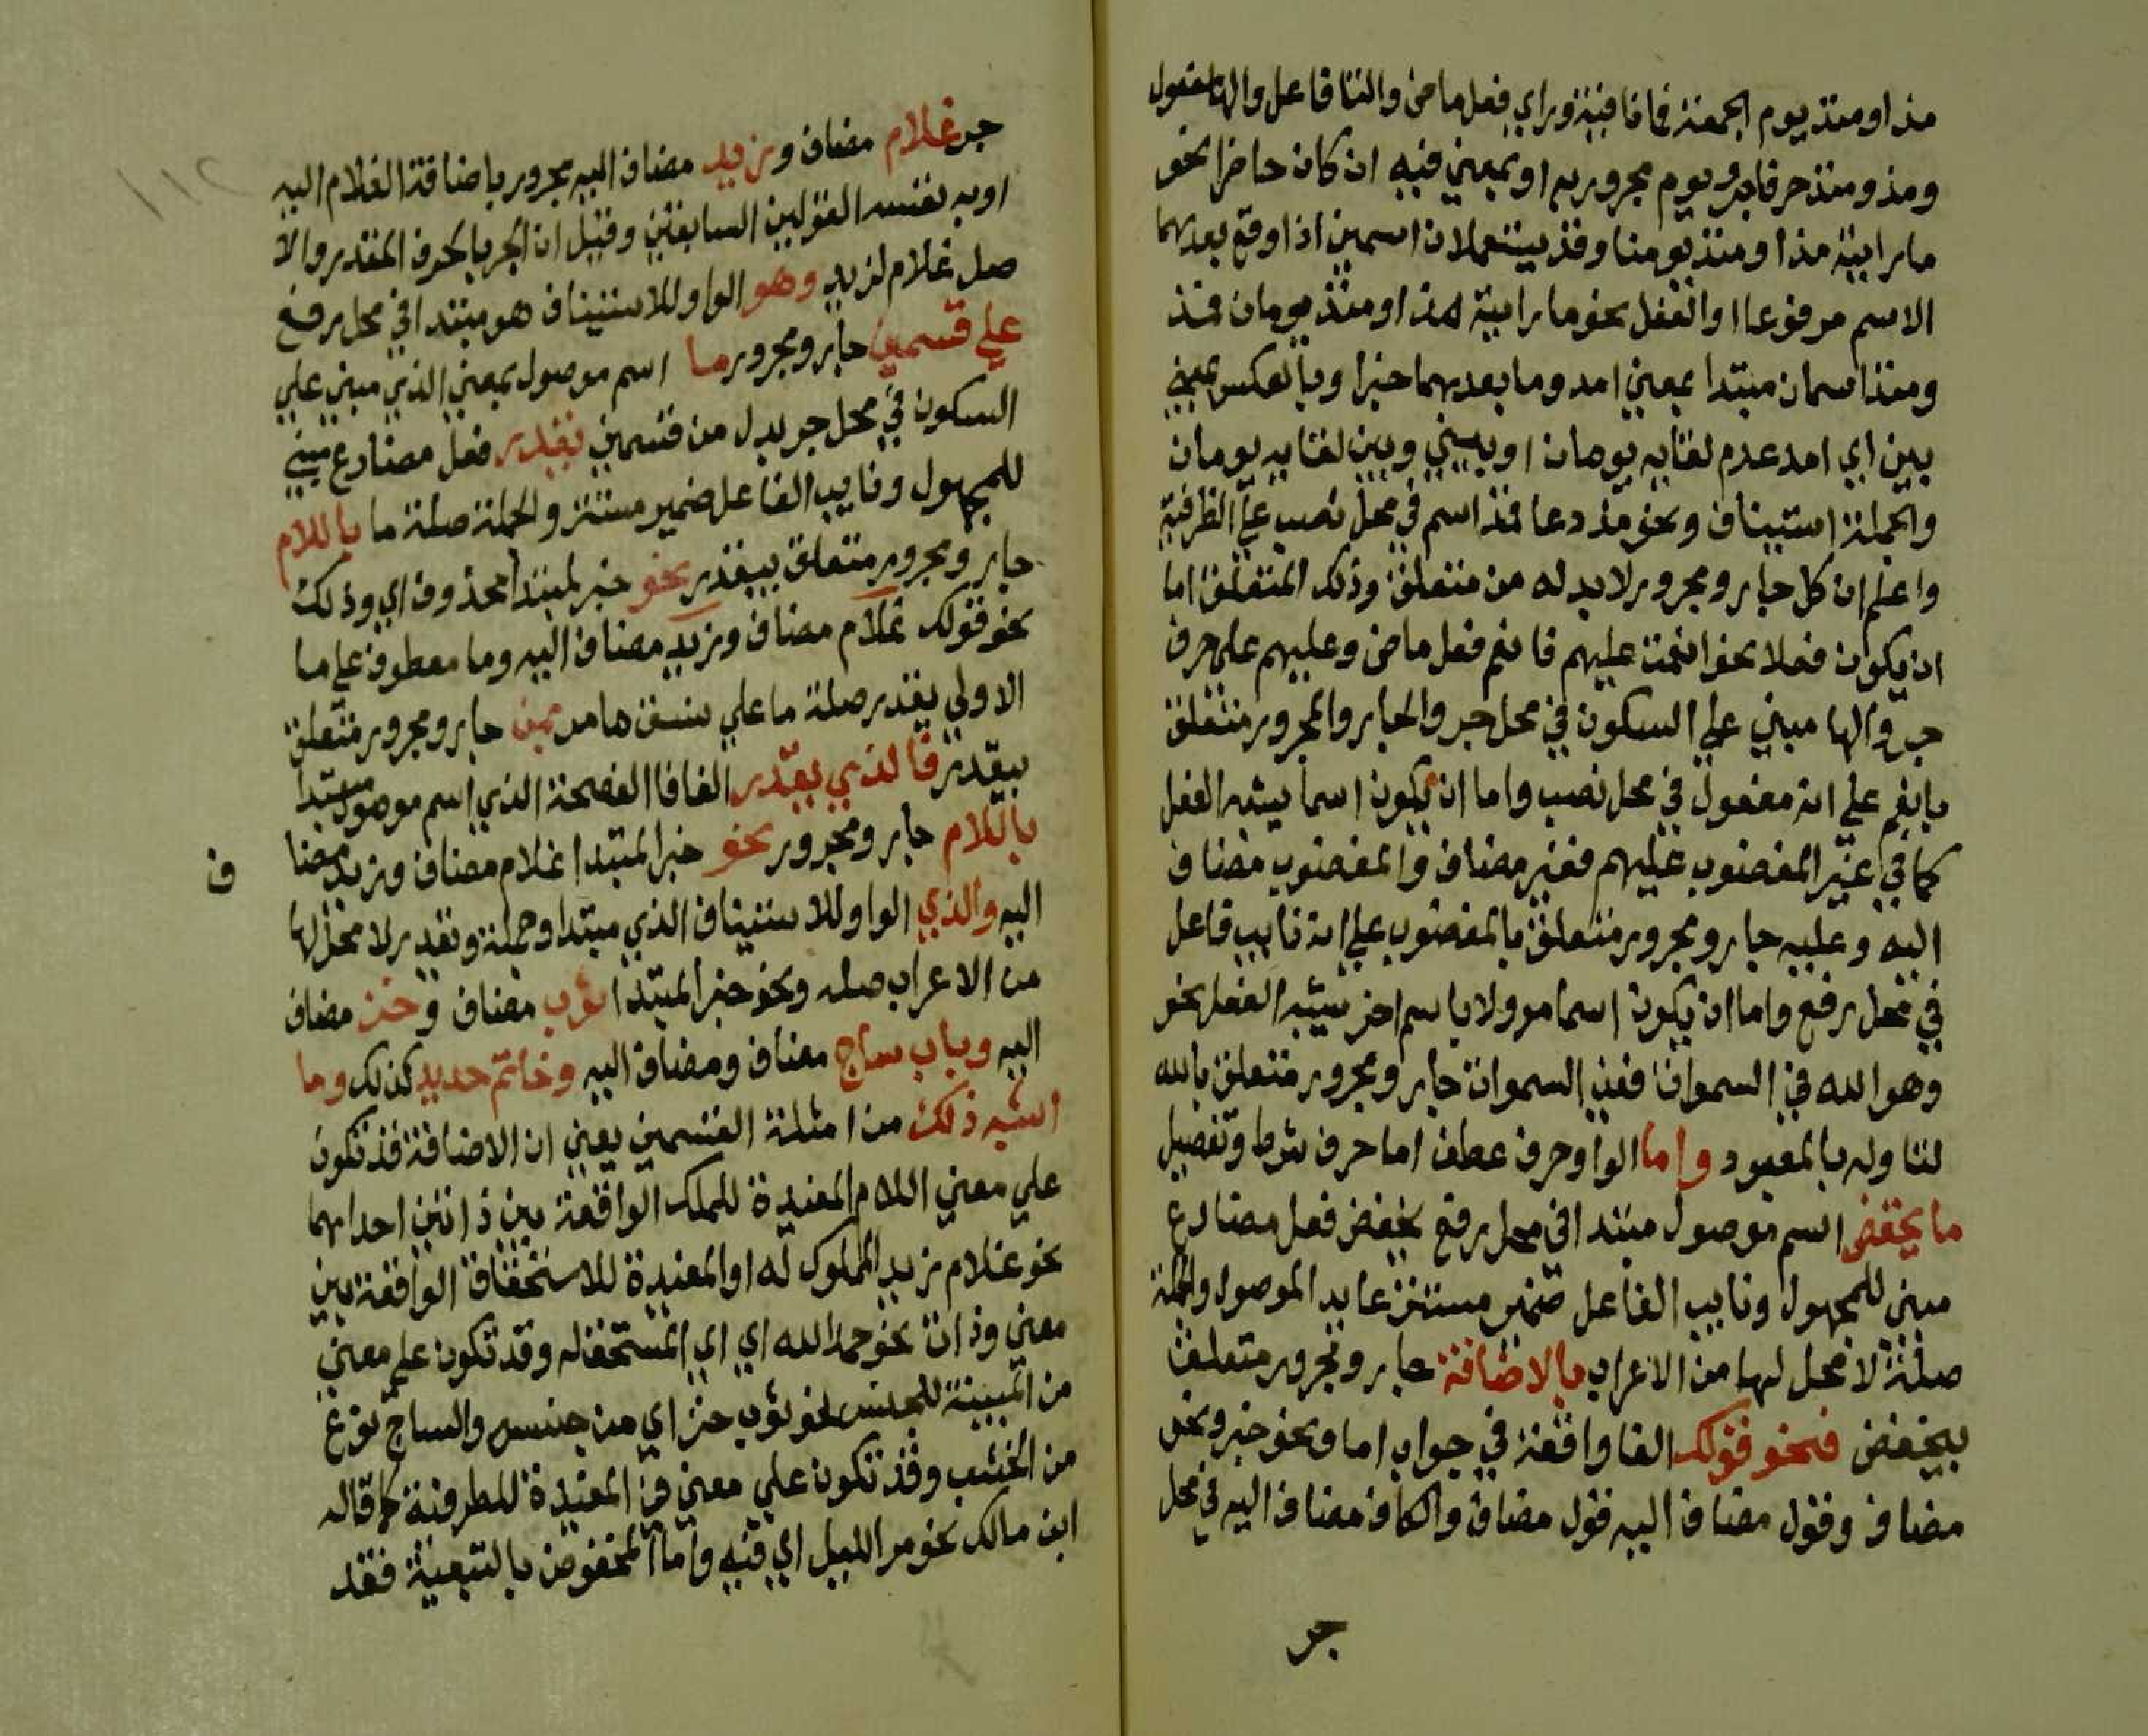 مذ او منذ يوم الجمعة فما نافية وراي فعل ماض والتا فاعل والها مفعول
ومذ ومنذ حرفا جر ويوم مجرور بهم او بمعني فيه ان كان حاضرا نحو
ما رايته مذ او منذ يومنا وقد يستعملان اسمين اذا وقع بعدهما
الاسم مرفوعا او الفعل نحو ما رايته مذ او منذ يومان فمذ
ومنذ اسمان مبتدا بمعني امد وما بعدهما خبر او بالعكس بمعني
بين اي امد عدم لقايه يومان او بيني وبين لقايه يومان
والجملة استيناف ونحو مذ دعا فمذ اسم في محل نصب علي الظرفية
واعلم ان كل جار ومجرور لابد له من متعلق وذلك المتعلق اما
ان يكون فعلا نحو انعمت عليهم فانعم فعل ماض وعليهم علي حرف
جر والها مبني علي السكون في محل جر والجار والمجرور متعلق
بانعم علي انه مفعول في محل نصب واما ان يكون اسما يشبه الفعل
كما في غير المغضوب عليهم فغير مضاف والمغضوب مضاف
اليه وعليه جار ومجرور متعلق بالمغضوب علي انه نايب فاعل
في محل رفع واما ان يكون اسما موولا باسم اخر يشبه الفعل نحو
وهو الله في السموات ففي السموات جار ومجرور متعلق بالله
لتاوله بالمعبود واما الواو حرف عطف اما حرف شرط وتفصيل
ما يخفض اسم موصول مبتدا في محل رفع يخفض فعل مضارع
مبني للمجهول ونايب الفاعل ضمير مستتر عايد الموصول والجملة
صلة لا محل لها من الاعراب بالاضافة جار ومجرور متعلق
بيخفض فنحو قولك الفا واقعة في جواب اما ونحو خبر ونحو
مضاف وقول مضاف اليه قول مضاف والكاف مضاف اليه في محل
جر
جر غلام مضاف وزيد مضاف اليه مجرور باضافة الغلام اليه
او به نفسه القولين السابقين وقيل ان الجر بالحرف المقدر والا
صل غلام لزيد وهو الواو للاستيناف هو مبتدا في محل رفع
علي قسمين جار ومجرور ما اسم موصول بمعني الذي مبني علي
السكون في محل جر بدل من قسمين يقدر فعل مضارع مبني
للمجهول ونايب الفاعل ضمير مستتر والجملة صلة ما باللام
جار ومجرور متعلق بيقدر نحو خبر لمبتدا محذوف اي وذلك
نحو قولك غلام مضاف وزيد مضاف اليه وما معطوف علي ما
الاولي يقدر صلة ما علي نسق ما مر بمن جار ومجرور متعلق
بيقدر فالذي يقدر الفا فا الفصحة الذي اسم موصول مبتدا
باللام جار ومجرور نحو خبر المبتدا غلام مضاف وزيد مضا
ف
اليه والذي الواو للاستيناف الذي مبتدا وجملة وتقدير لا محل لها
من الاعراب صله ونحو خبر المبتدا ثوب مضاف وخز مضاف
اليه وباب ساج مضاف ومضاف اليه وخاتم حديد كذلك وما
اشبه ذلك من امثلة القسمين يعني ان الاضافة قد تكون
علي معني اللام المفيدة للملك الواقعة بين ذاتين احداهما
نحو غلام زيد المملوك له او المفيدة للاستحقاق الواقعة بين
معني وذات نحو حمد الله اي اي المستحق له وقد تكون علي معني
من المبينة للجنس نحو ثوب خز اي من جنس والساج نوع
من الخشب وقد تكون علي معني في المفيدة للظرفية كما قاله
ابن مالك نحو مر الليل اي فيه واما المخفوض بالتبعية فقد